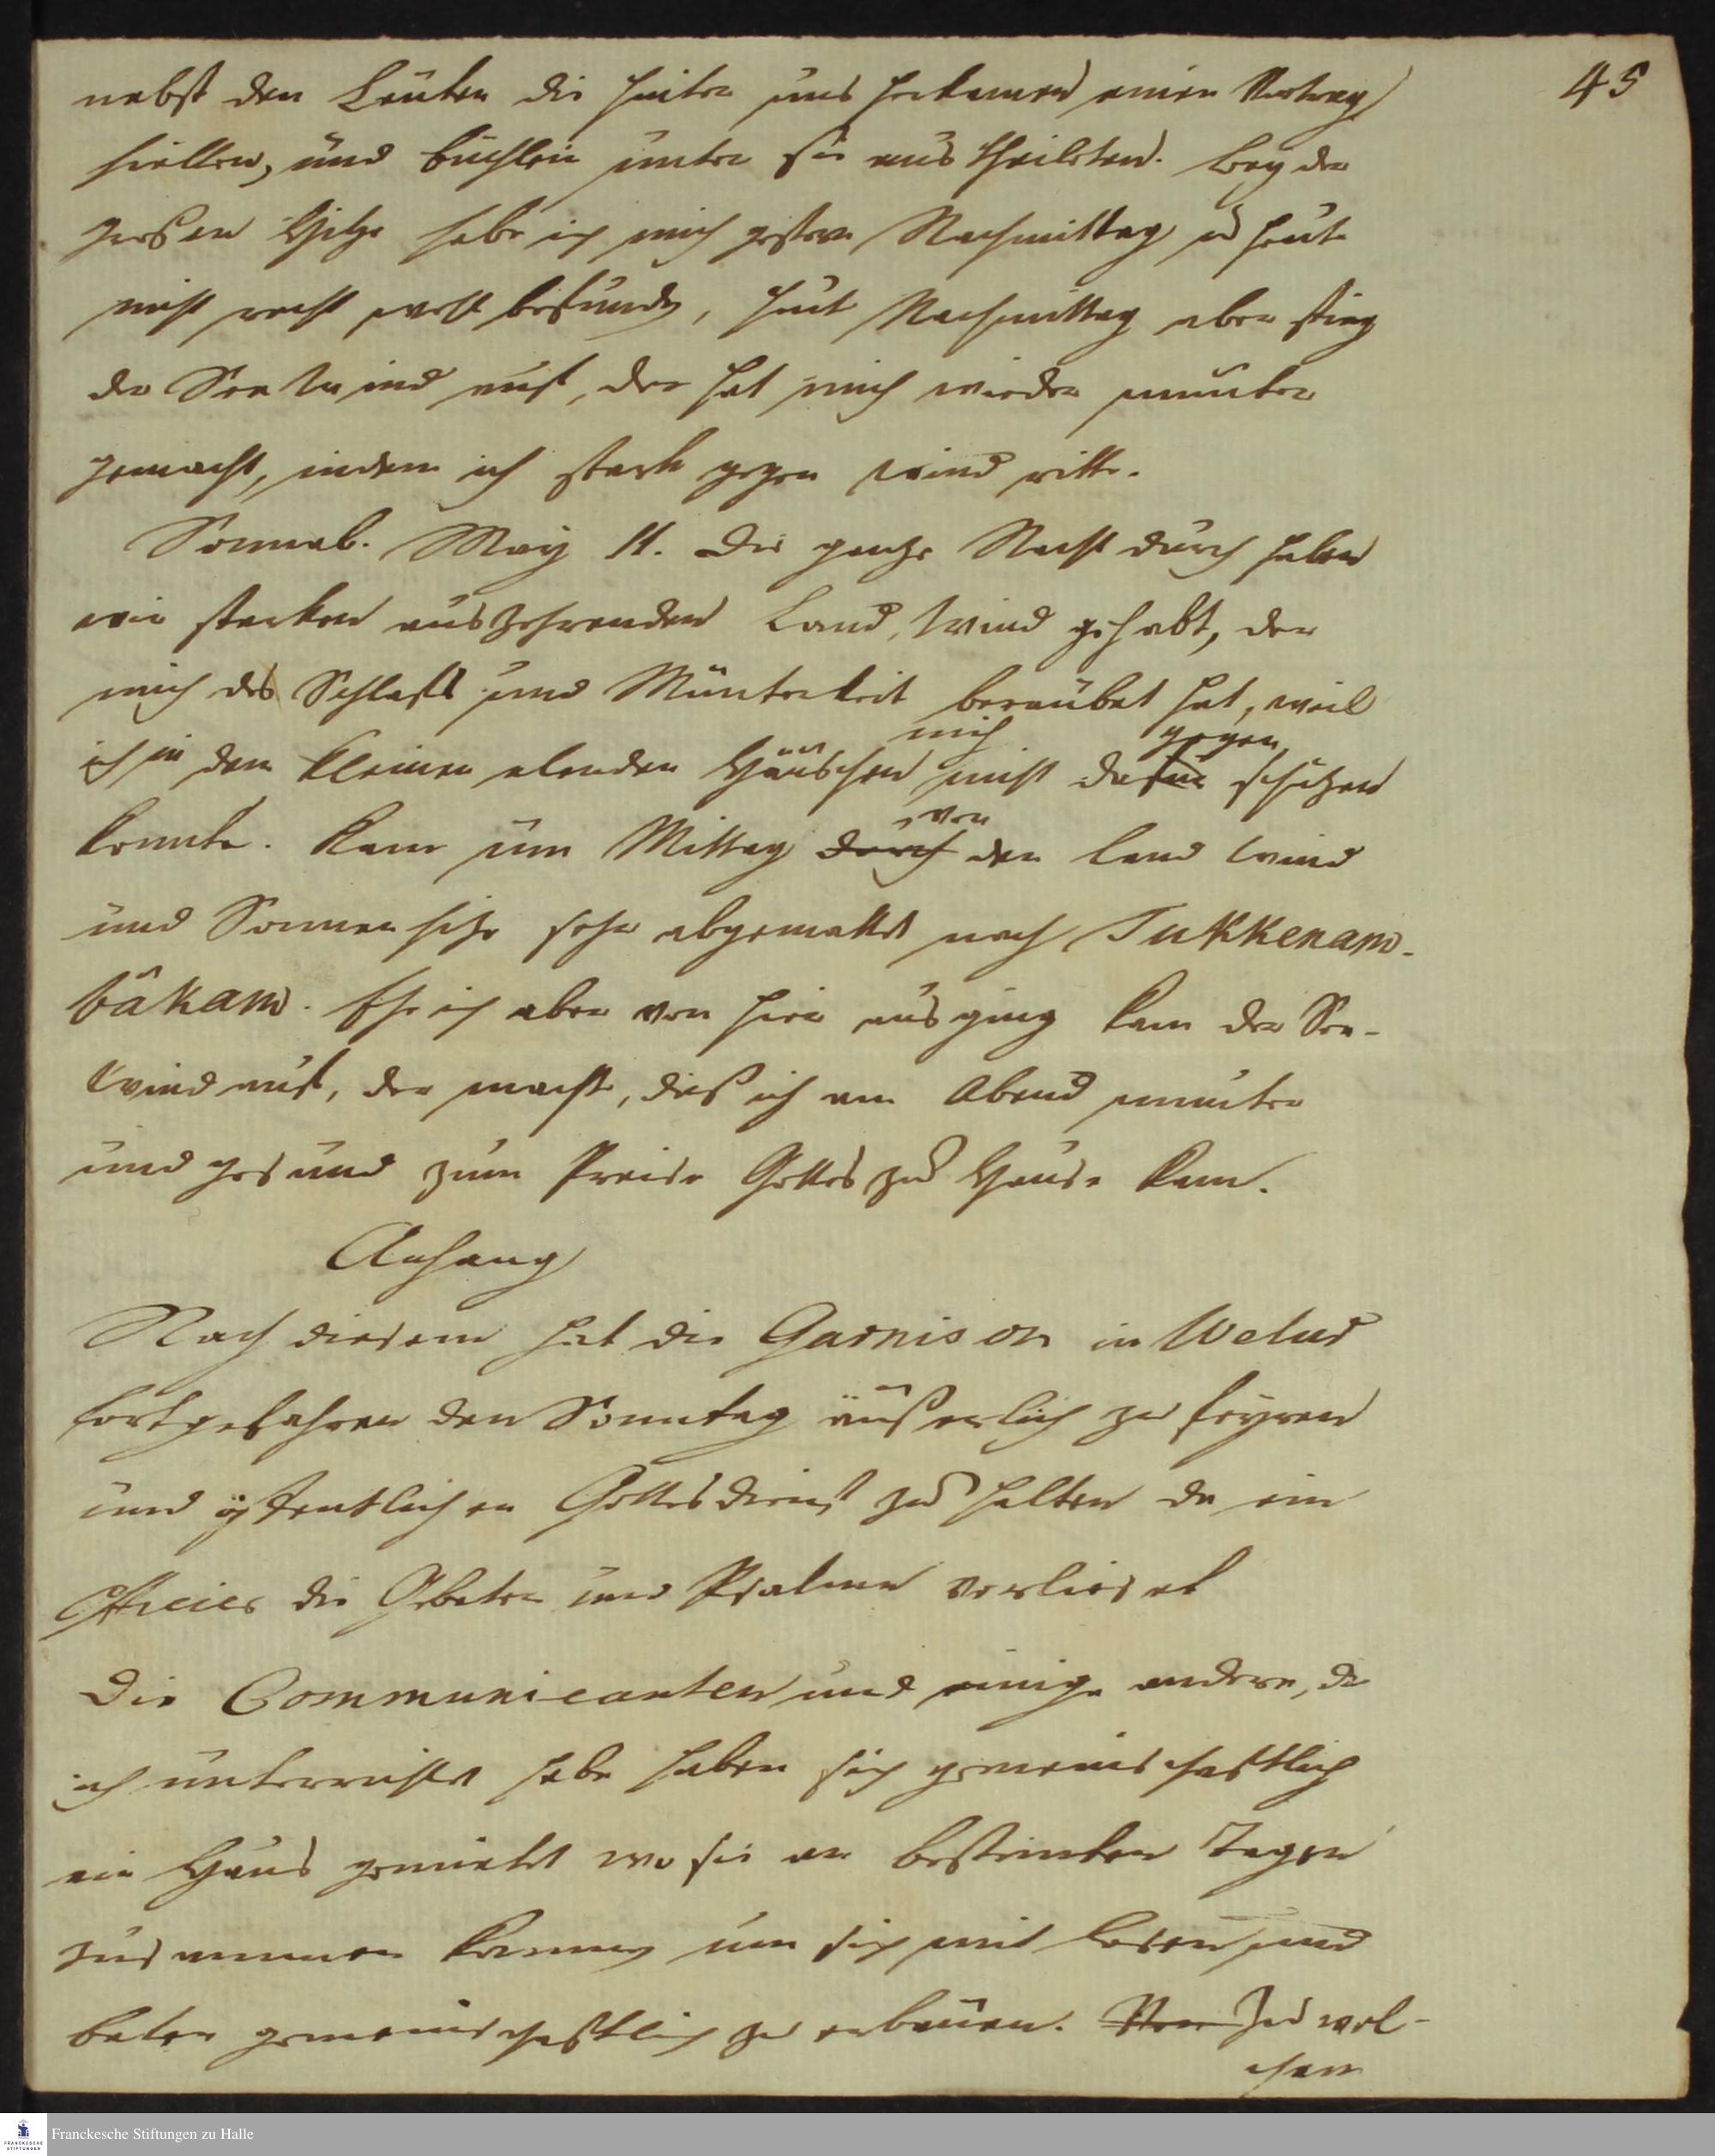 45
nebst den Leuten die hinter uns herkamen einen Vortrag
hielten, und büchlein unter sie aus theileten. Bey der
großen Hitze habe ich mich gestern Nachmittag u heute
nicht recht wohl befunden, heut Nachmittag aber stieg
der See Wind auf, der hat mich wieder munter
gemacht, indem ich stark gegen Wind ritte.
Sonnab. May 11. Die ganze Nacht durch haben
wir starken auszehrenden Land, Wind gehabt, der
mich des Schlafs und Munterkeit beraubet hat, weil
mich gegen
ich in dem kleinen elenden Häuschen nicht dafür schützen
von
konnte. Kam um Mittag durch den land Wind
und Sonnen hitze sehr abgemattet nach Tukkenam-
bâkam. Ehe ich aber von hier aus ging kam der See-
Wind auf, der machte, daß ich am Abend munter
und gesund zum Preise Gottes zu Hause kam.
Anhang
Nach diesem hat die Garnison in Welur
fortgefahren den Sonntag äußerlich zu feyren
und öffentlichen Gottesdienst zu halten da ein
Officier die Gebeter und Psalmen verlieset
Die Communicanten und einige andere, die
ich unterrichtet habe haben sich gemeinschaftlich
ein Haus gemietet wo sie an bestimten Tagen
zusammen kommen um sich mit lesen und
beten gemeinschaftlich zu erbauen. Zu wel-
chen
Franckesche Stiftungen zu Halle